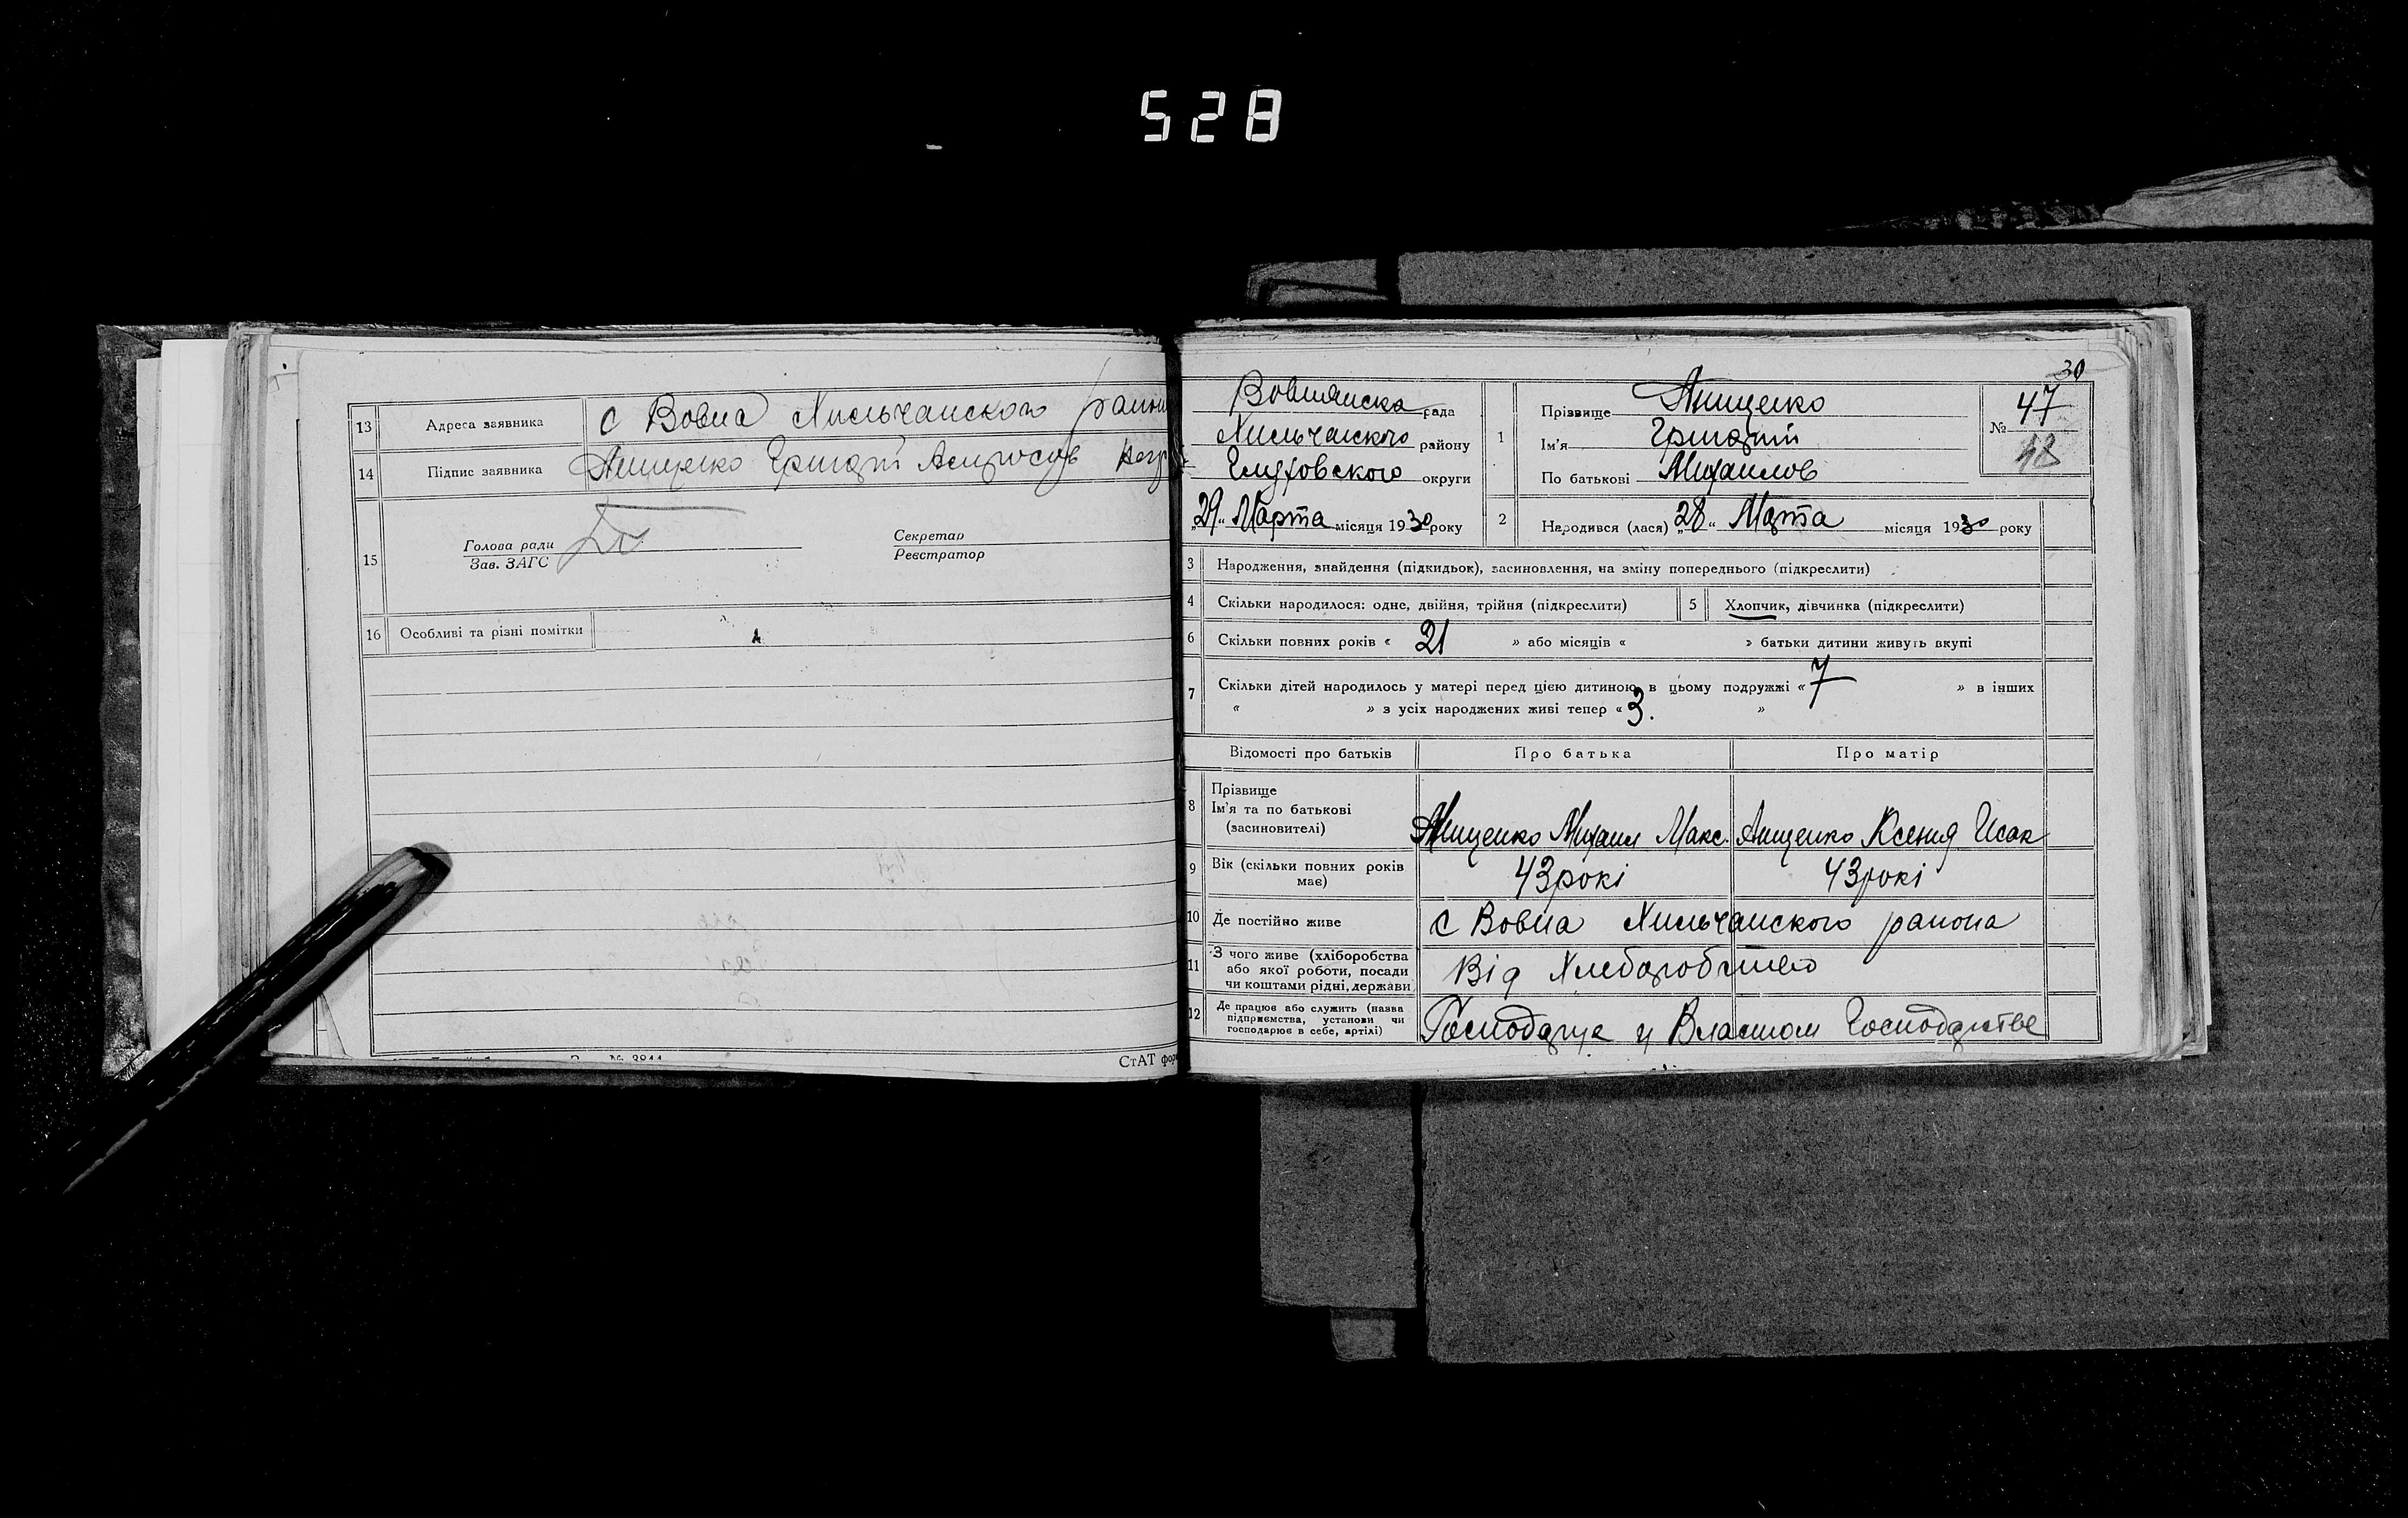 528
13 Адреса заявника с Вовна Хильчанского
14 Підпис заявника Анищенко Григорий
15 Голова ради
Зав. ЗАГС
Секретар
Реєстратор
16 Особливі та різні помітки
СтАТ
30
Вовнянска рада
Хильчанского району
Глуховского округи
„29“ Марта місяця 1930 року
1 Прізвище Анищенко
Ім'я Григорий
По батькові Михаилов
№ 47
48
2 Народився (лася) „28“ Марта місяця 1930 року
3 Народження, знайдення (підкидьок), засиновлення, на зміну попереднього (підкреслити)
4 Скільки народилося: одне, двійня, трійня (підкреслити)
5 Хлопчик, дівчинка (підкреслити)
6 Скільки повних років « 21 » або місяців « » батьки дитини живуть вкупі
7 Скільки дітей народилось у матері перед цією дитиною в цьому подружжі « 7 » в інших
« » з усіх народжених живі тепер « 3. »
Відомості про батьків Про батька Про матір
8 Прізвище
Ім'я та по батькові
(засиновителі)
Анищенко Михаил Макс. Анищенко Ксения Исак
9 Вік (скільки повних років
має)
43 рокі 43 рокі
10 Де постійно живе с Вовна Хильчанского раиона
11 З чого живе (хліборобства
або якої роботи, посади
чи коштами рідні, держави
Від Хлеборобство
12 Де працює або служить (назва
підприємства, установи чи
господарює в себе, артілі)
Господарує у Власном Господарстве